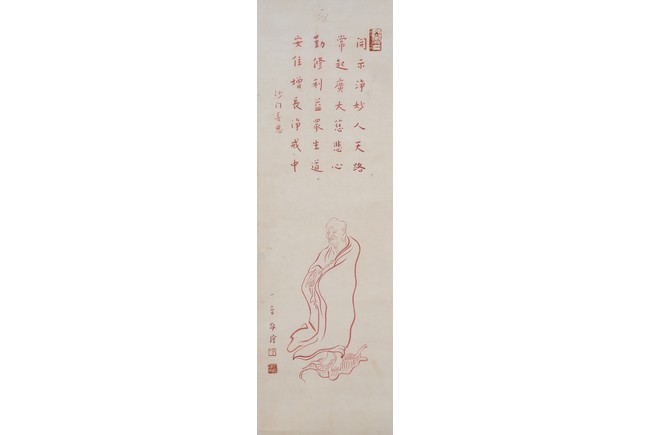 開示淨妙人天路
常起廣大慈悲心
勤修利益眾生道
安住增長淨戒中
沙門善思
一音敬繪